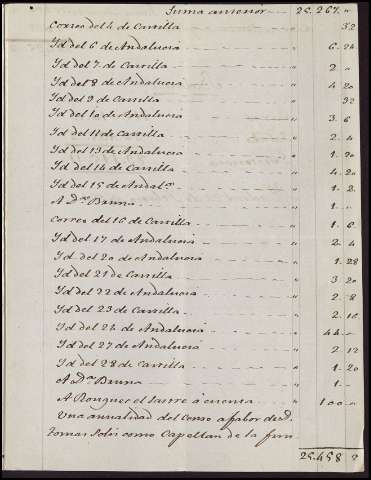 Suma anterior 25.267 "
Correo del 4 de Castilla " 32
Yd del 6 de Andalucia " 6. 24
Yd del 7 de Castilla " 2 "
Yd del 8 de Andalucia " 4. 20
Yd del 9 de Castilla " 32
Yd del 10 de Andalucia " 3. 6
Yd del 11 de Castilla " 2. 4
Yd del 13 de Andalucia " 1. 20
Yd del 14 de Castilla " 4. 20
Yd del 15 de Andalª " 1. 2
A Dª Bruna " 1. "
Correo del 16 de Castilla " 1. 6
Yd del 17 de Andalucia " 2. 4
Yd del 20 de Andalucia " 1. 28
Yd del 21 de Castilla " 3. 20
Yd del 22 de Andalucia " 2. 8
Yd del 23 de Castilla " 2. 10
Yd del 24 de Andalucia " 44 "
Yd del 27 de Andalucia " 2. 12
Yd del 28 de Castilla " 1. 20
A Dª Bruna " 1. "
A el sastre á cuenta " 100 "
Una anualidad del Censo a fabor de D.
Tomas Solis como Capellan de la fun
25.458 2